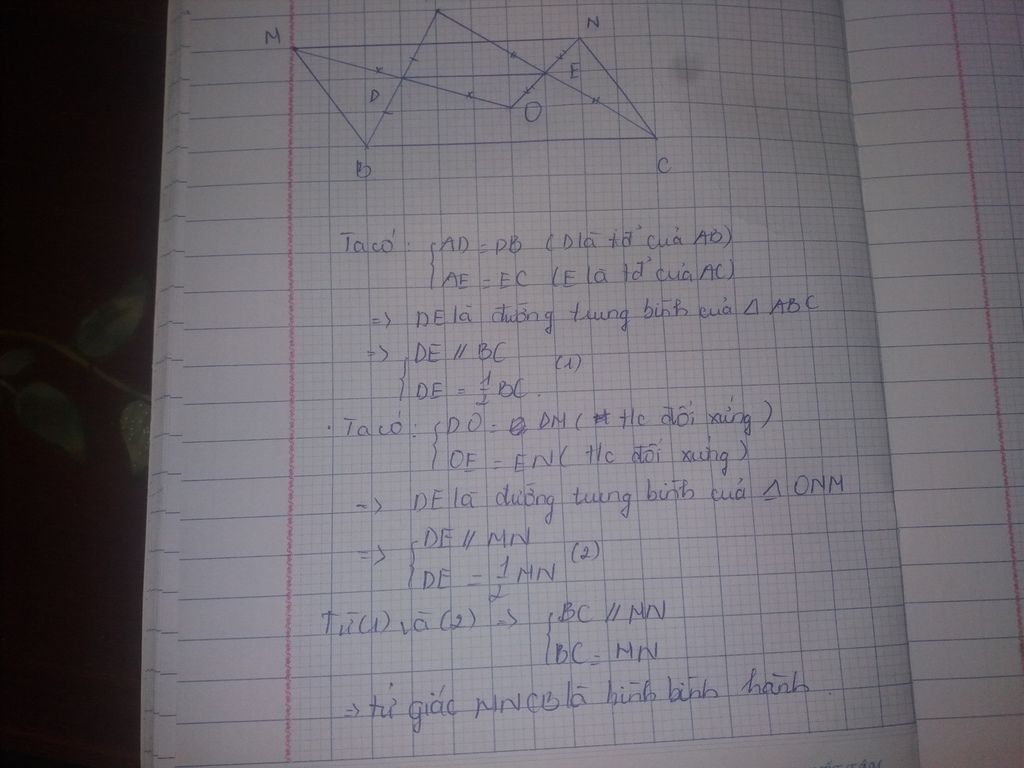 M N
D E
O
B C
Ta có: { AD = DB (D là tđ' của AB)
AE = EC (E là tđ' của AC)
=> DE là đường trung bình của Δ ABC
=> { DE // BC (1)
DE = 1/2 BC.
. Ta có: { DO = DM ( t/c đối xứng )
OE = EN ( t/c đối xứng )
=> DE là đường trung bình của Δ ONM
=> { DE // MN (2)
DE = 1/2 MN
Từ (1) và (2) => { BC // MN
BC = MN
=> tứ giác MNCB là hình bình hành.